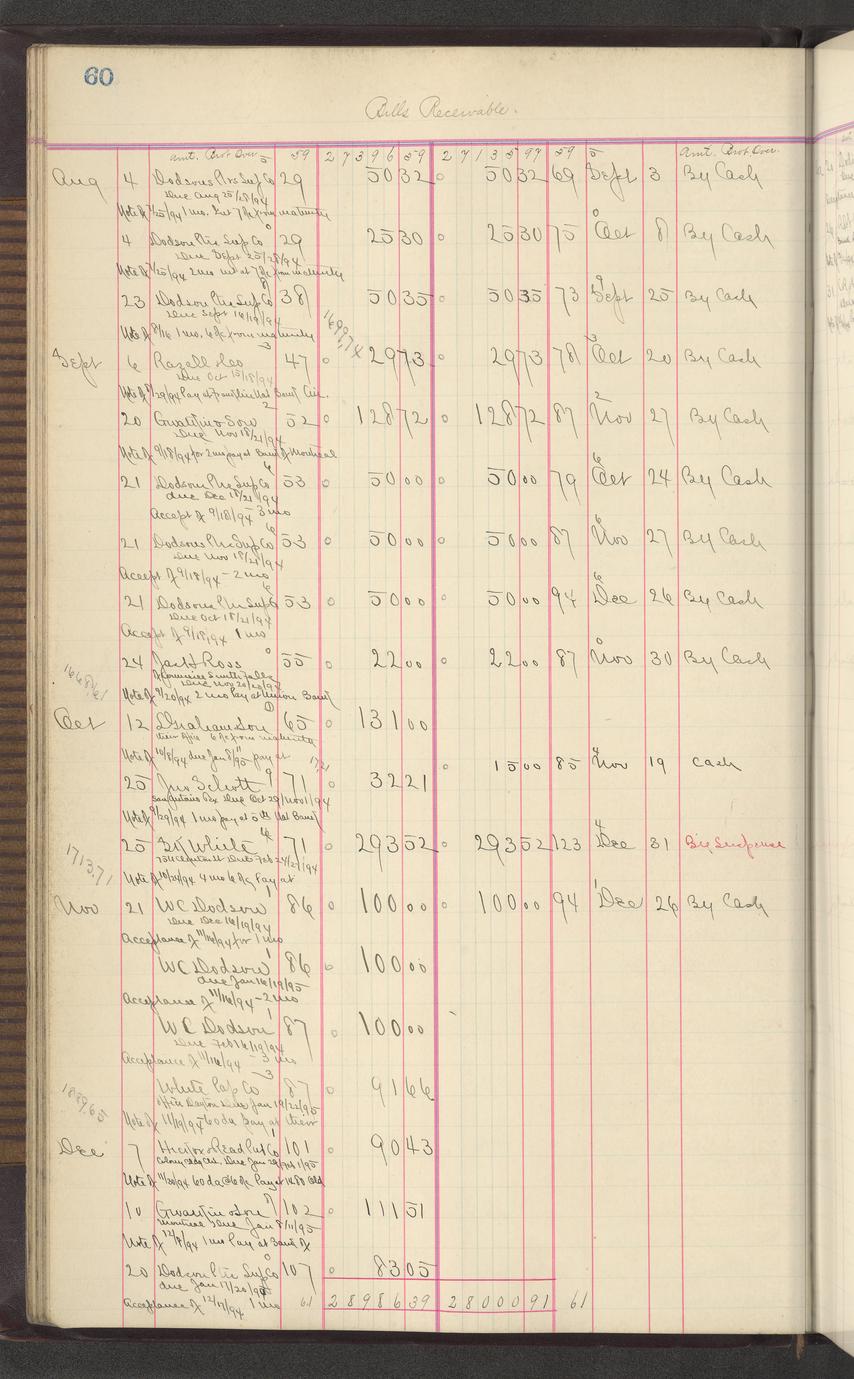 60
Bills Receivable.
Amt. Brot Over 59 27396 59 27135 97 59 Amt. Brot Over.
Aug 4 Dodsons Ptrs Sup Co 29 50 32 50 32 69 Sept 3 By Cash
Due Aug 25/28/94
Note of 7/25/94 1 mo. Int 7% from maturity
4 Dodson Ptr Sup Co 29 25 30 25 30 75 Oct 8 By Cash
Due Sept 25/28/94
Note of 7/25/94 2 mo int at 7% from maturity
23 Dodson Ptr Sup Co 38 50 35 50 35 73 Sept 25 By Cash
Due Sept 16/19/94
Note of 8/16 1 mo. 6% from maturity
1699.74
Sept 6 Razell & Co 47 29 73 29 73 78 Oct 20 By Cash
Due Oct 15/18/94
20 Gwatkin & Son 52 128 72 128 72 87 Nov 27 By Cash
Due Nov 18/21/94
Note of 9/18/94 for 2 mo pay at Bank of Montreal
21 Dodson Ptr Sup Co 53 50 00 50 00 79 Oct 24 By Cash
due Dec 18/21/94
Accept of 9/18/94 - 3 mo
21 Dodsons Ptr Sup Co 53 50 00 50 00 87 Nov 27 By Cash
Due Nov 18/21/94
Accept of 9/18/94 - 2 mo
21 Dodsons Ptr Sup Co 53 50 00 50 00 94 Dec 26 By Cash
Due Oct 18/21/94
Accept of 9/18/94 1 mo
24 Jas H Ross 55 22 00 22 00 87 Nov 30 By Cash
Due Nov 20/23/94
Note of 9/20/94 2 mo Pay at Union Bank
Oct 12 D Graham & Son 65 131 00
their Office 6% from maturity
Note of 10/8/94 due Jan 8/11/95 pay at
15 00 85 Nov 19 Cash
25 Jno Schott 71 32 21
San Antonio Tex Due Oct 29/Nov 1/94
Note of 9/29/94 1 mo pay at 5th Nat Bank
1713.71
25 White 71 293 52 293 52 123 Dec 31 By Suspense
Note of 10/24/94 4 mo 6% Pay at
Nov 21 WC Dodson 86 100 00 100 00 94 Dec 26 By Cash
Due Dec 16/19/94
Acceptance of 11/16/94 for 1 mo
WC Dodson 86 100 00
due Jan 16/19/95
Acceptance of 11/16/94 - 2 mo
WC Dodson 87 100 00
Due Feb 16/19/94
Acceptance of 11/16/94 - 3 mo
White Pap Co 87 91 66
Office Dayton Due Jan 19/22/95
Note of 11/19/94 60 da Pay at their
Dec 7 Hector Read Pub Co 101 90 43
Note of 11/30/94 60 da @ 6% Pay at
10 Gwatkin & Son 102 111 51
Montreal Due Jan 8/11/95
Note of 12/8/94 1 mo Pay at Bank of
20 Dodson Ptr Sup Co 107 83 05
due Jan 17/20/95
Acceptance of 12/17/94 1 mo 61 28986 39 28000 91 61